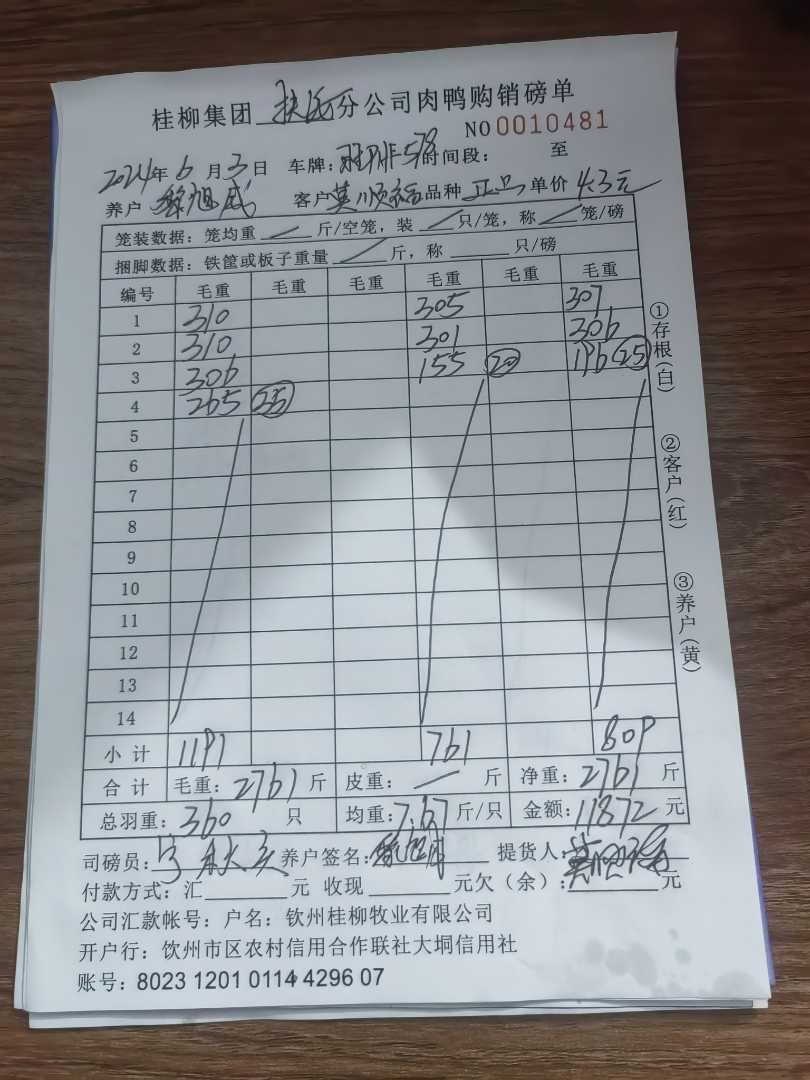 桂柳集团 扶绥 分公司肉鸭购销磅单
NO 0010481
2024年 6 月 3 日 车牌: 578 时间段: 至
养户 黎旭威 客户 莫顺福 品种 正品 单价 4.3元
笼装数据: 笼均重 / 斤/空笼, 装 / 只/笼, 称 / 笼/磅
捆脚数据: 铁筐或板子重量 / 斤, 称 只/磅
编号 毛重 毛重 毛重 毛重 毛重 毛重
1 310 305 307
2 310 301 306
3 306 155 20 196 25
4 265 35
5
6
7
8
9
10
11
12
13
14
小计 1191 761 809
合计 毛重: 2761 斤 皮重: / 斤 净重: 2761 斤
总羽重: 360 只 均重: 7.67 斤/只 金额: 11872 元
司磅员: 养户签名: 黎旭威 提货人: 莫顺福
付款方式: 汇 元 收现 元欠(余): 元
公司汇款帐号: 户名: 钦州桂柳牧业有限公司
开户行: 饮州市区农村信用合作联社大垌信用社
账号: 8023 1201 0114 4296 07
①存根(白)
②客户(红)
③养户(黄)